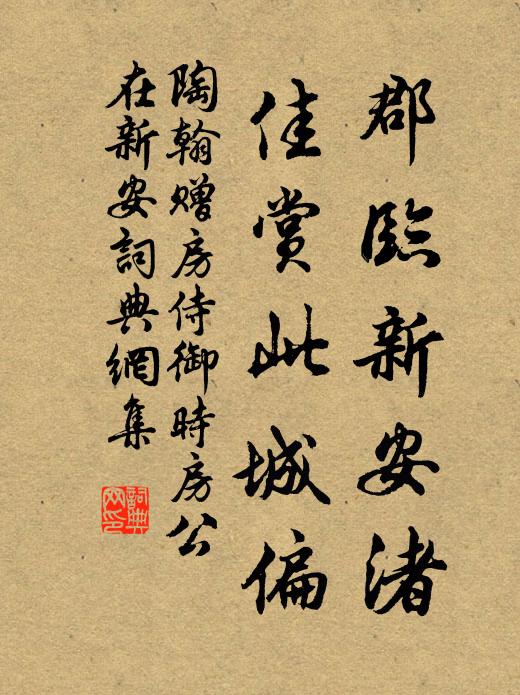 郡臨新安渚
佳賞此城偏
陶翰贈房侍御時房公
在新安詞典網集
詞典
网印